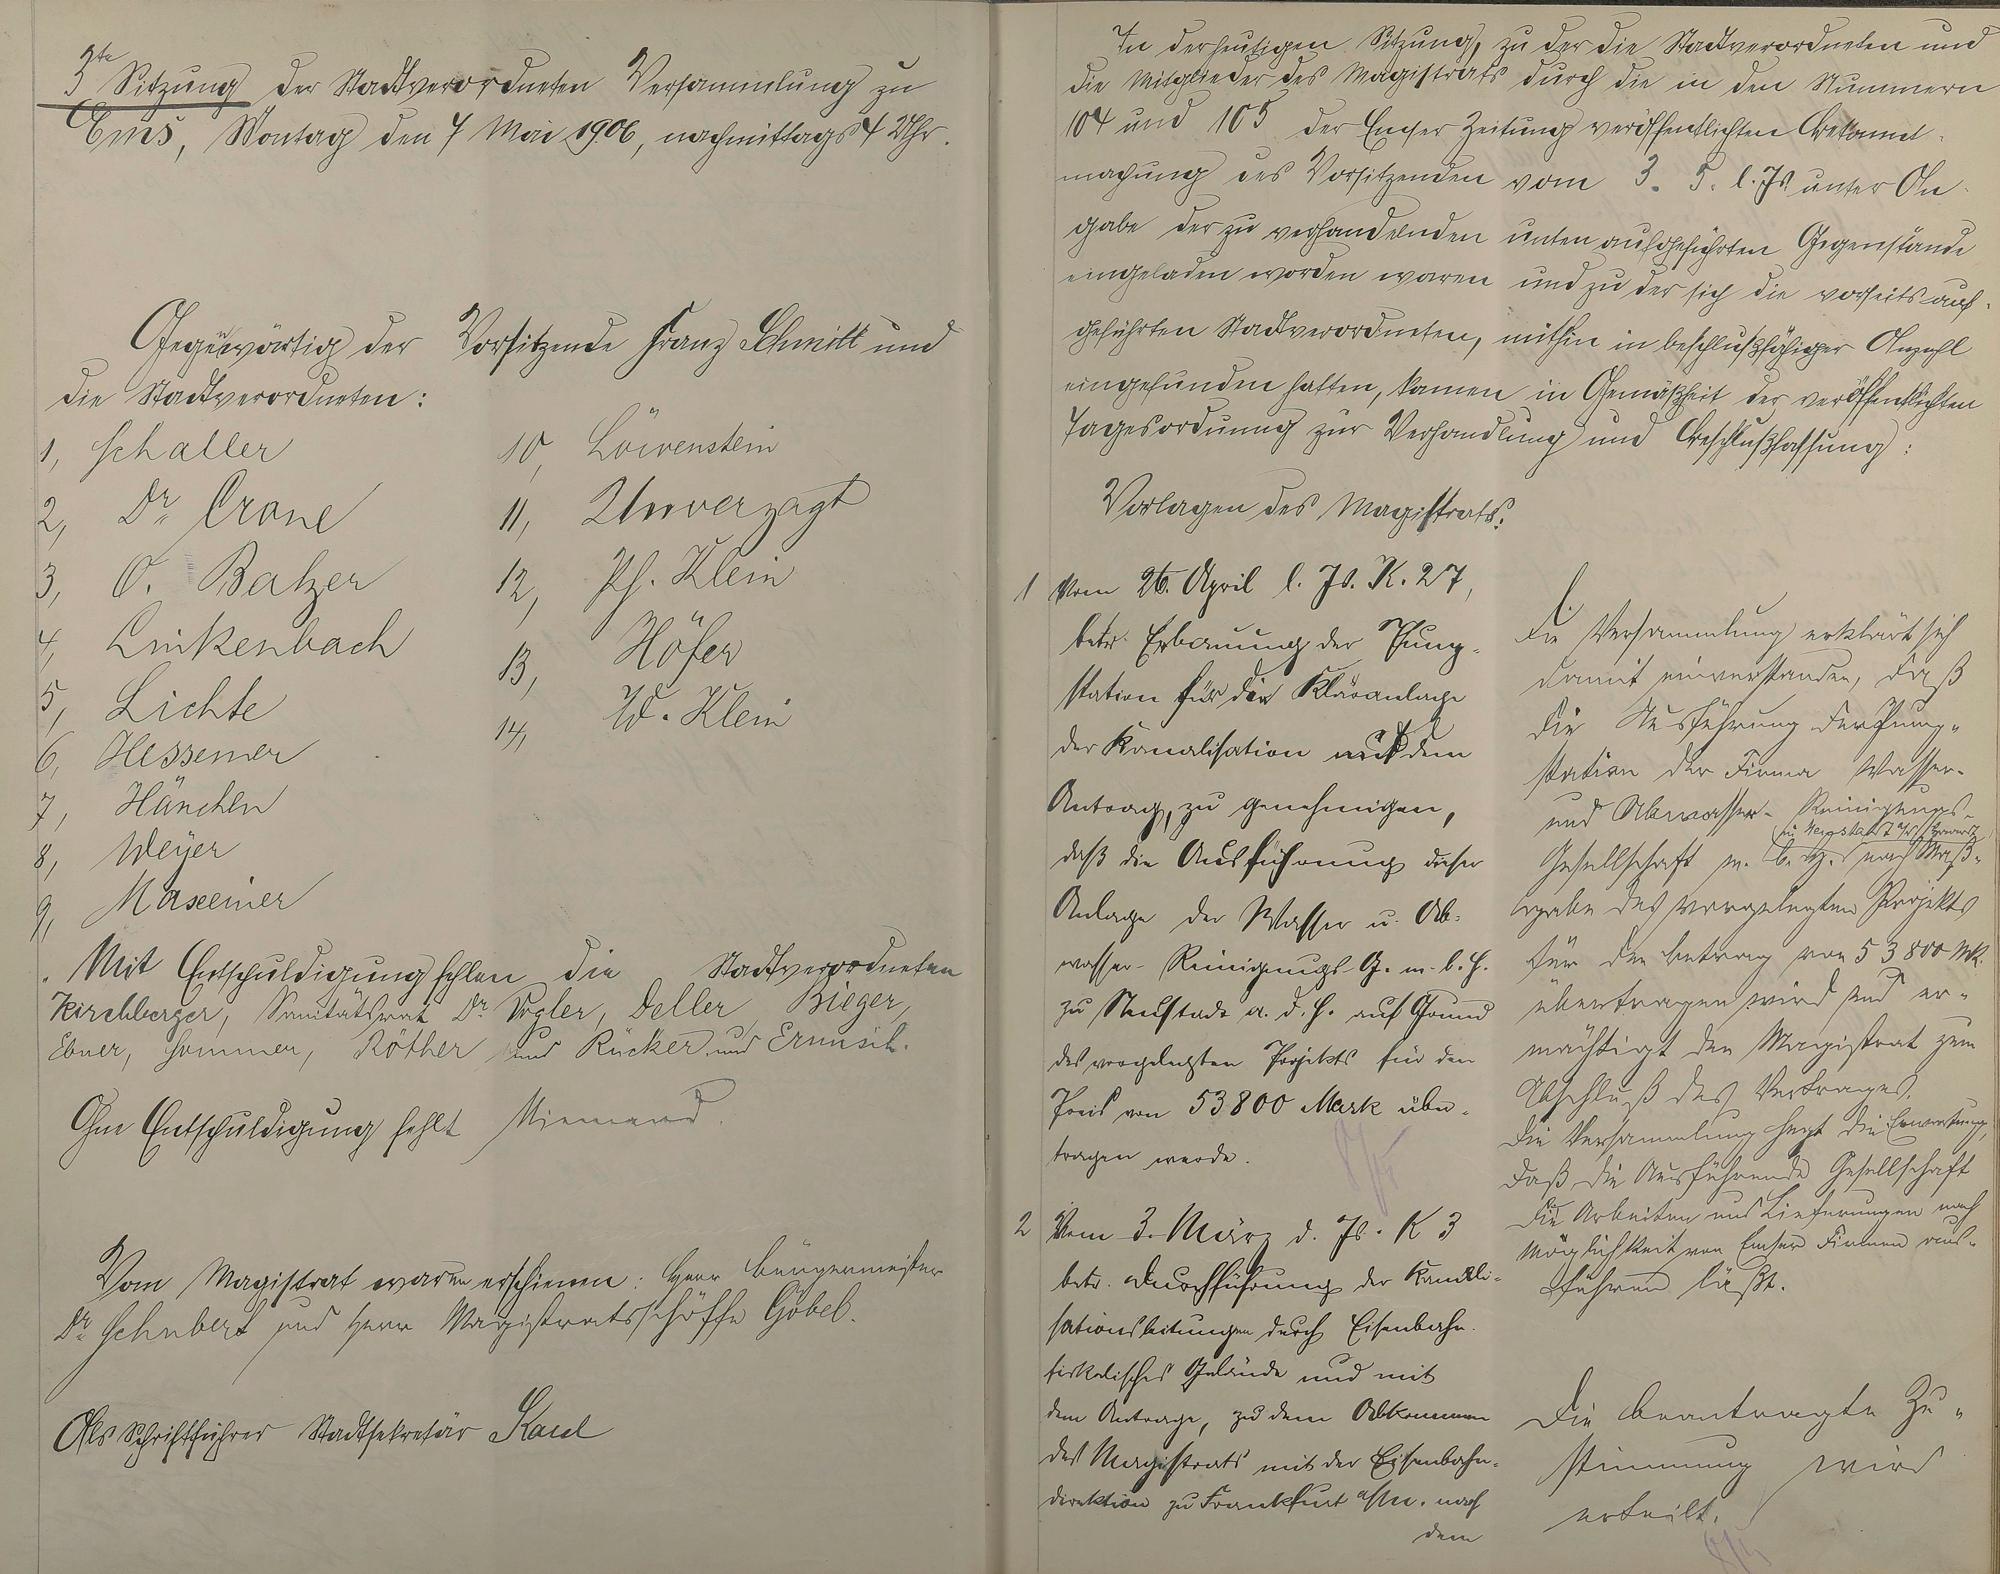 3te Sitzung der Stadtverordneten Versammlung zu
Ems, Montag den 7 Mai 1906, nachmittags 4 Uhr.
Gegenwärtig der Vorsitzende Franz Schmitt und
die Stadtverordneten:
1, Schaller
2, Dr. Crone
3, O. Balzer
4, Linkenbach
5, Lichte
6, Hessemer
7, Hänchen
8, Weyer
9, Maxeiner
10, Löwenstein
11, Unverzagt
12, Ph. Klein
13, Höfer
14, W. Klein
Mit Entschuldigung fehlen die Stadtverordneten
Kirchberger, Sanitätsrat Dr. Vogler, Deller Bieger,
Ebner, Sommer, Röther und Rücker und Ermisch.
Ohne Entschuldigung fehlt Niemand.
Vom Magistrat waren erschienen: Herr Bürgermeister
Dr. Schubert und Herr Magistratsschöffe Göbel.
Als Schriftführer Stadtsekretär Kaul
In der heutigen Sitzung, zu der die Stadtverordneten und
die Mitglieder des Magistrats durch die in den Nummern
104 und 105 der Emser Zeitung veröffentlichten Bekannt-
machung des Vorsitzenden vom 3. 5. l. Js. unter An-
gabe der zu verhandelnden unten aufgeführten Gegenstände
eingeladen worden waren und zu der sich die vorseits auf-
geführten Stadtverordneten, mithin in beschlußfähiger Anzahl
eingefunden hatten, kamen in Gemäßheit der veröffentlichten
Tagesordnung zur Verhandlung und Beschlußfassung:
Vorlagen des Magistrats:
1 Vom 26. April l. Js. K. 27,
betr. Erbauung der Pump-
station für die Kläranlage
der Kanalisation mit dem
Antrag, zu genehmigen,
daß die Ausführung dieser
Anlage der Wasser u. Ab-
wasser-Reinigungs-G. m. b. H.
zu Neustadt a. d. H. auf Grund
des vorgelegten Projekts für den
Preis von 53800 Mark über-
tragen werde.
2 Vom 3. März d. Js. K 3
betr. Durchführung der Kanali-
sationsleitungen durch Eisenbahn-
fiskalisches Gelände und mit
dem Antrage, zu dem Abkommen
des Magistrats mit der Eisenbahn-
direktion zu Frankfurt a/M. nach
dem
1.
Die Versammlung erklärt sich
damit einverstanden, daß
die Ausführung der Pump-
station der Firma Wasser-
und Abwasser-Reinigungs-
in Neustadt a/d
Gesellschaft m. b. H. nach Maß-
gabe des vorgelegten Projekts
für den Betrag von 53800 Mk.
übertragen wird und er-
mächtigt den Magistrat zum
Abschluß des Vertrages.
Die Versammlung hegt die Erwartung,
daß die Ausführende Gesellschaft
die Arbeiten und Lieferungen nach
Möglichkeit von Emser Firmen aus-
führen läßt.
Die beantragte Zu-
stimmung wird
erteilt.